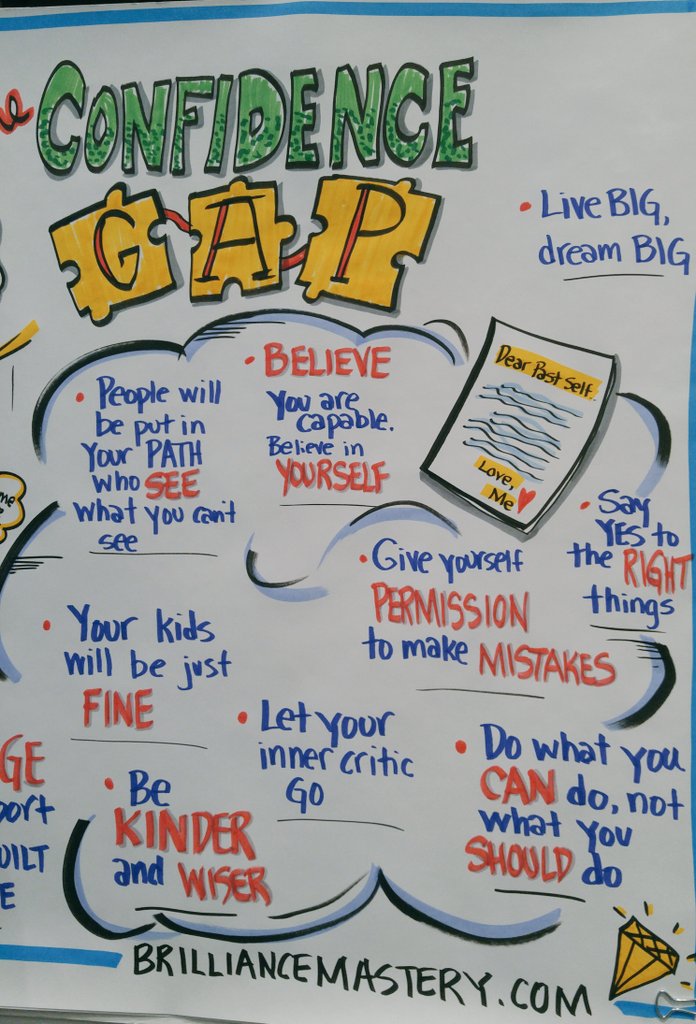 CONFIDENCE
GAP
• Live BIG,
dream BIG
• People will
be put in
your PATH
who SEE
what you can't
see
• BELIEVE
You are
capable.
Believe in
YOURSELF
Dear Past Self..
Love,
Me
• Say
YES to
the RIGHT
things
• Give yourself
PERMISSION
to make MISTAKES
• Your kids
will be just
FINE
• Let your
inner critic
GO
• Do what you
CAN do, not
what you
SHOULD do
• Be
KINDER
and WISER
BRILLIANCEMASTERY.COM